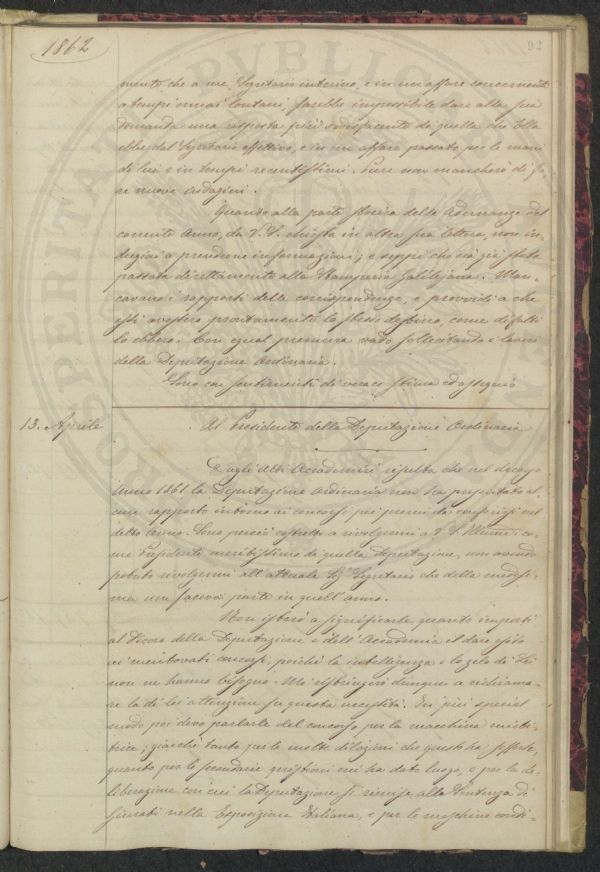 1862
92
mento che a me Segretario interino, e in un affare concernente
a tempi ormai lontani, sarebbe impossibile dare alla sua
domanda una risposta più sodisfacente di quella che Ella
ebbe dal Segretario effettivo, e in un affare passato per le mani
di lui e in tempi recentissimi. Pure non mancherò di fa-
re nuove indagini.
Quanto alla parte storica delle Adunanze del
corrente Anno, da V. S. chiesta in altra sua lettera, non in-
dugiai a prendere informazioni; e seppi che era già stata
passata direttamente alla Stamperia Galilejana. Man-
cavano i rapporti delle corrispondenze, e provvidi a che
essi avessero prontamente lo stesso destino, come difatti
lo ebbero. Con egual premura vado sollecitando i lavori
della Deputazione Ordinaria.
Sono con sentimenti di verace stima ed ossequio
13. Aprile
Al Presidente della Deputazione Ordinaria
Dagli Atti Accademici risulta che nel decorso
Anno 1861 la Deputazione Ordinaria non ha presentato al-
cun rapporto intorno ai concorsi pei premi da conferirsi nel
detto Anno. Sono perciò costretto a rivolgermi a V. S. Illma co-
me Presidente meritissimo di quella Deputazione, non avendo
potuto rivolgermi all'attuale Sig. Segretario che della medesi-
ma non faceva parte in quell'anno.
Non istarò a significarle quanto importi
al Decoro della Deputazione e dell'Accademia il dare esito
ai mentovati concorsi, poichè la intelligenza e lo zelo di Lei
non ne hanno bisogno. Mi ristringerò dunque a richiama-
re la di lei attenzione su questa necessità. In più special
modo poi devo parlarle del concorso per la macchina mieti-
trice; giacchè tanto per le molte dilazioni che questo ha sofferte,
quanto per le secondarie quistioni cui ha dato luogo, e per la de-
liberazione con cui la Deputazione si rimise alla Sentenza di
Giurati nella Esposizione Italiana, e per le macchine conti-